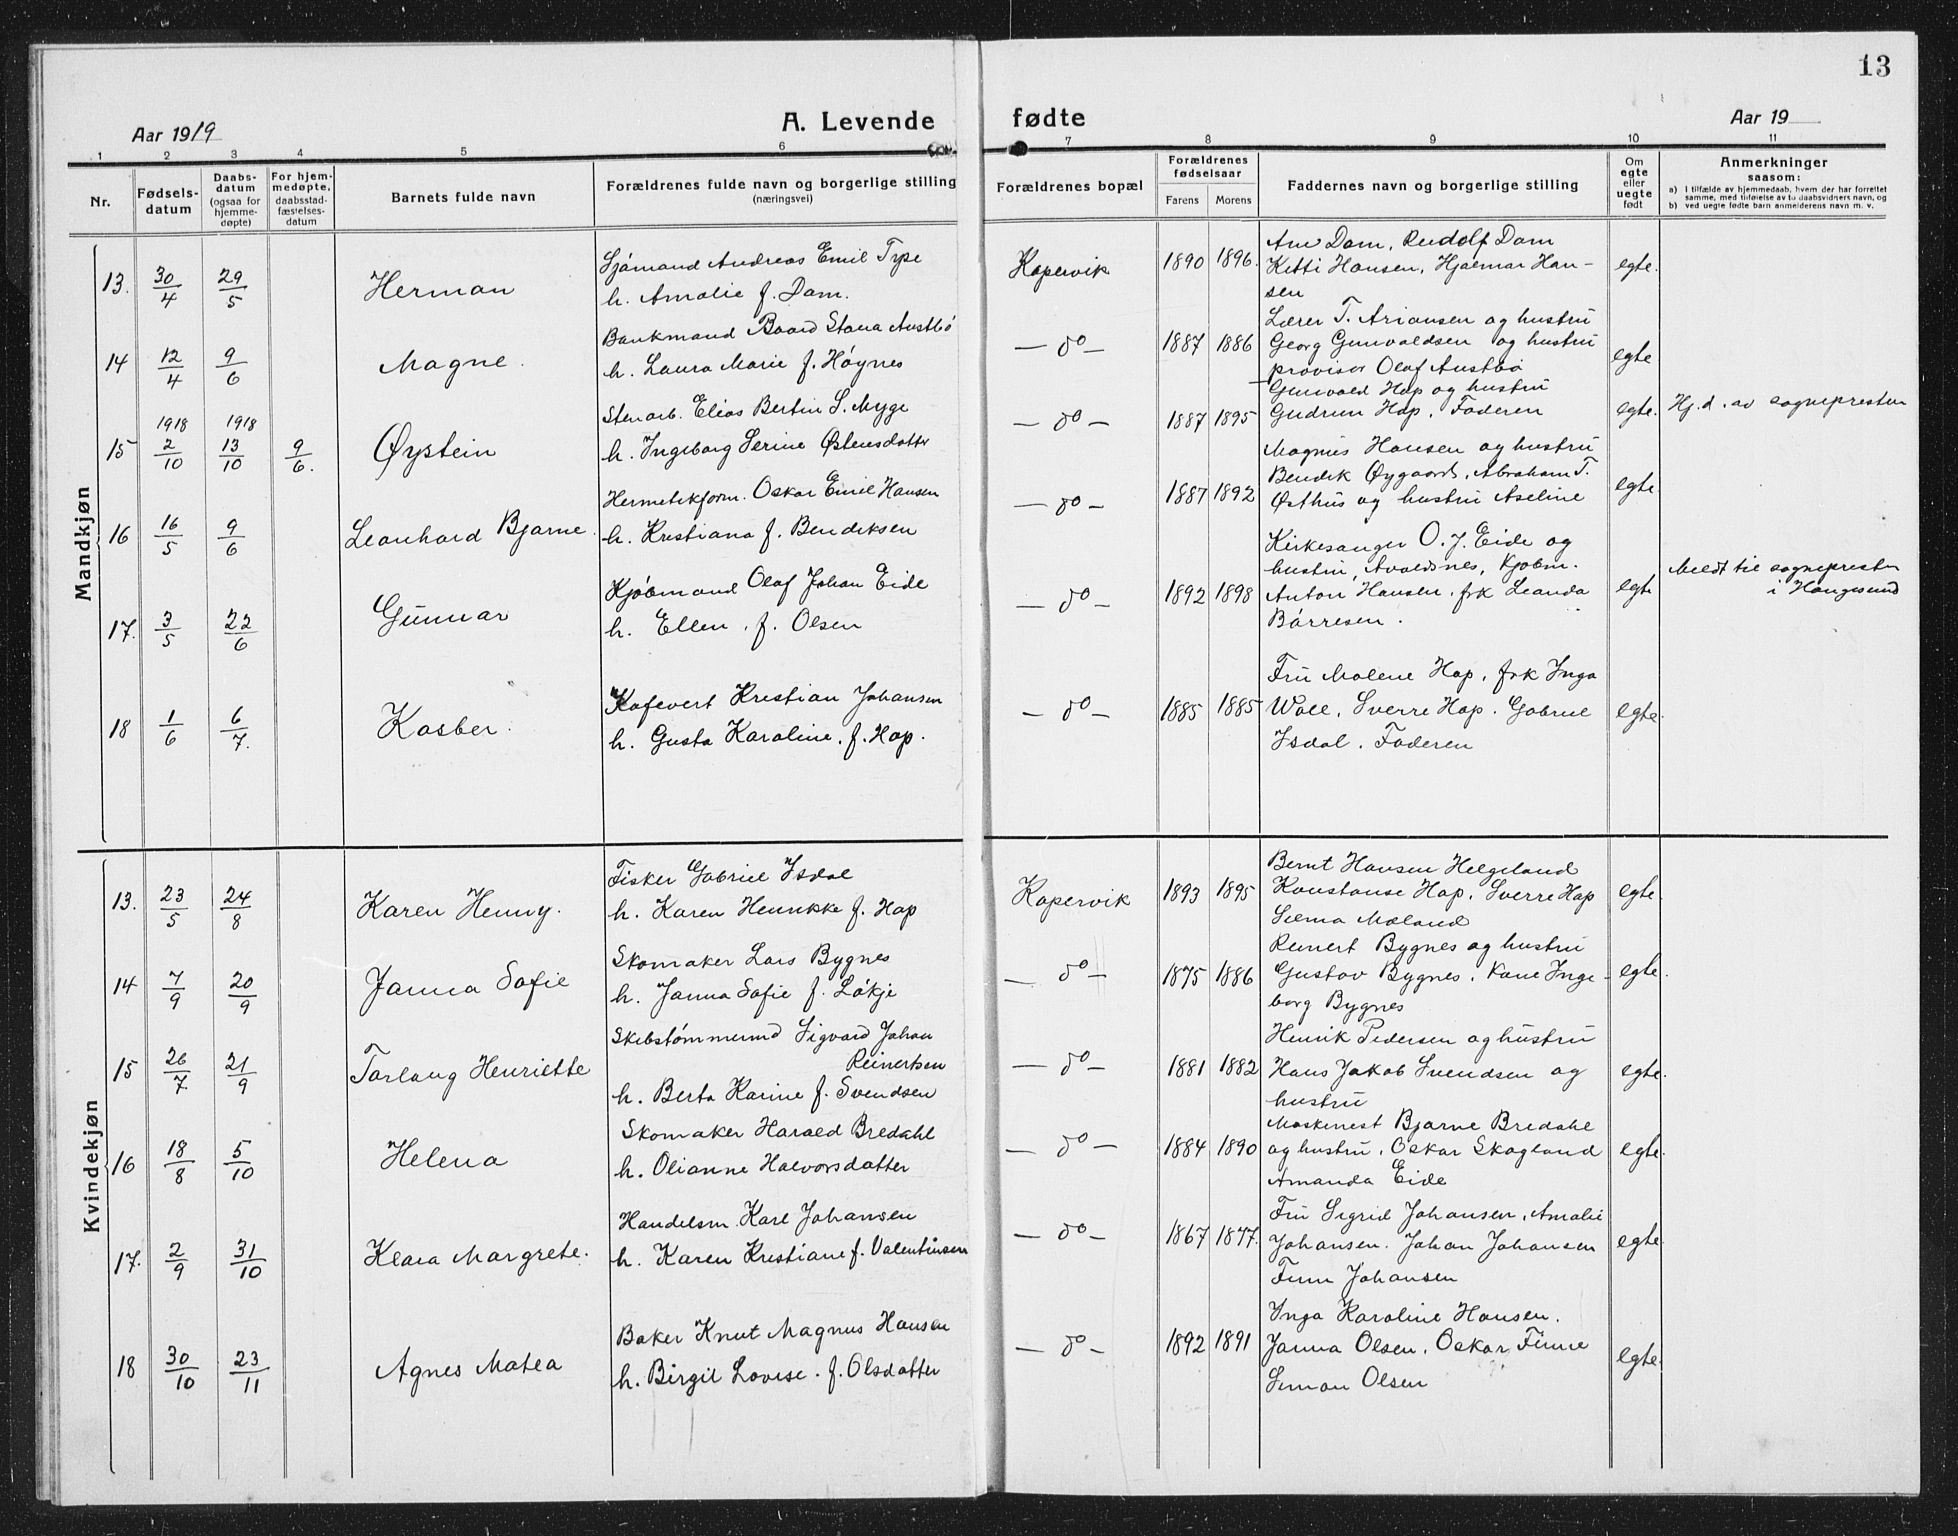 13
Aar 1919
A. Levende fødte
Aar 19
1 2 3 4 5 6 7 8 9 10 11
Nr.
Fødsels-
datum
Daabs-
datum
(ogsaa for
hjemme-
døpte)
For hjem-
medøpte,
daabsstad-
fæstelses-
datum
Barnets fulde navn
Forældrenes fulde navn og borgerlige stilling
(næringsvei)
Forældrenes bopæl
Forældrenes
fødselsaar
Farens Morens
Faddernes navn og borgerlige stilling
Om
egte
eller
uegte
født
Anmerkninger
saasom:
a) I tilfælde av hjemmedaab, hvem der har forrettet
samme, med tilføielse av to daabsvidners navn, og
b) ved uegte fødte barn anmelderens navn m. v.
Mandkjøn
13. 30/4 29/5 Herman
Sjómand Andreas Emil
h. Amalie f. Dam.
Kopervik 1890 1896.
Dam, Rudolf Dam
Kitti Hansen, Hjalmar Han-
sen
egte.
14 12/4 9/6 Magne.
Bankmand Baard Stana Austbó
h. Laura Marie f. Høynes
— do — 1887 1886
Lærer T. Ariansen og hustru
Georg Gunvaldsen og hustru
provisor Olaf Austbó
egte
1918 1918
15 2/10 13/10 9/6. Øystein
Stenarb. Elias Bertin S. Myge
h. Ingeborg Serine Østensdatter
— do — 1887 1895
Gunvald Hop og hustru
Gudrun Hop. Faderen
egte.
Hj.d. av sognepresten
16 16/5 9/6 Leonhard Bjarne.
Hermetikform. Oskar Emil Hansen
h. Kristiana f. Bendiksen
— do — 1887 1892
Magnus Hansen og hustru
Bendik Øygaard, Abraham T.
Østhus og hustru Aseline
egte
17. 3/5 22/6 Gunnar
Kjóbmand Olaf Johan Eide
h. Ellen. f. Olsen
— do — 1892 1898
Kirkesanger O. J. Eide og
hustru, Avaldsnes, Kjøbm.
Anton Hansen. frk Leanda
Bórresen.
egte
Meldt til sognepresten
i Haugesund
18 1/6 6/7. Kasber.
Kafevert Kristian Johansen
h. Gusta Karoline. f. Hop.
— do — 1885 1885
Fru Malene Hop, frk Inga
Wall, Sverre Hop. Gabriel
Isdal. Faderen
egte.
Kvindekjøn
13. 23/5 24/8 Karen Henny.
Fisker Gabriel Isdal
h. Karen Henrikke f. Hop
Kopervik 1893 1895
Bernt Hansen Helgeland
Konstanse Hop, Sverre Hop
Selma Mæland
egte.
14 7/9 20/9 Janna Sofie
Skomaker Lars Bygnes
h. Janna Sofie f. Lókje
— do — 1875 1886
Reinert Bygnes og hustru
Gustav Bygnes, Kone Inge-
borg Bygnes
egte.
15 26/7 21/9 Torlaug Henriette
Skibstømmermd Sigvard Johan
Reinertsen
h. Berta Karine f. Svendsen
— do — 1881 1882
Henrik Pedersen og hustru
Hans Jakob Svendsen og
hustru
egte.
16 18/8 5/10 Helena
Skomaker Harald Bredahl
h. Olianne Halvorsdatter
— do — 1884 1890
Maskinest Bjarne Bredahl
og hustru, Oskar Skogland
Amanda Eide
egte.
17. 2/9 31/10 Klara Margrete.
Handelsm. Karl Johansen
h. Karen Kristiane f. Valentinsen
— do — 1867 1877.
Fru Sigrid Johansen, Amalie
Johansen. Johan Johansen
Finn Johansen
egte.
18 30/10 23/11 Agnes Matea
Baker Knut Magnus Hansen
h. Birgit Lovise. f. Olsdatter
— do — 1892 1891
Inga Karoline Hansen.
Janna Olsen, Oskar Finne
Simon Olsen
egte.